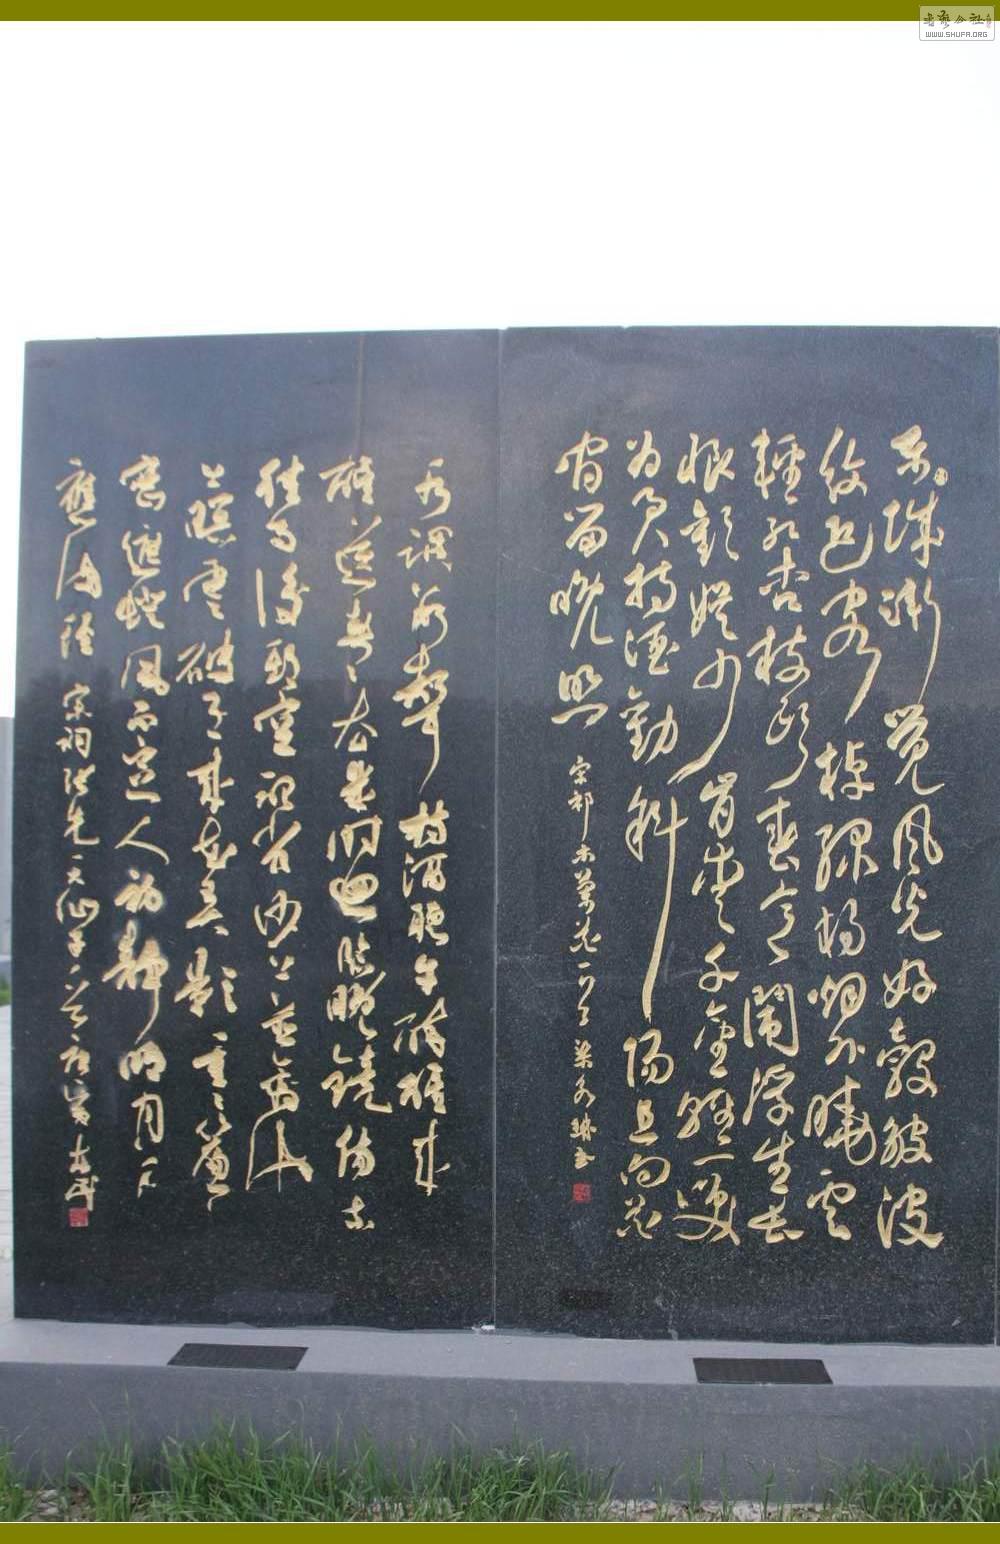 东城渐觉风光好縠皱波
纹迎客棹绿杨烟外晓云
轻红杏枝头春意闹浮生长
恨欢娱少肯爱千金轻一笑
为君持酒劝斜阳且向花
间留晚照 宋祁木兰花一首
水调数声持酒听午醉醒来
醒送春春去几时回临晚镜伤
往事后期空记省沙上并禽池
上瞑云破月来花弄影重重帘
密遮灯风不定人初静明日
应满径 宋词张先天仙子
WWW.SHUFA.ORG